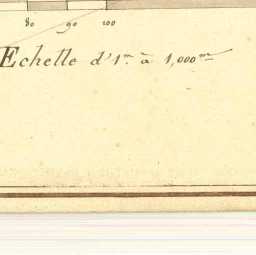 80 90 100
Echelle d'1.m à 1,000m